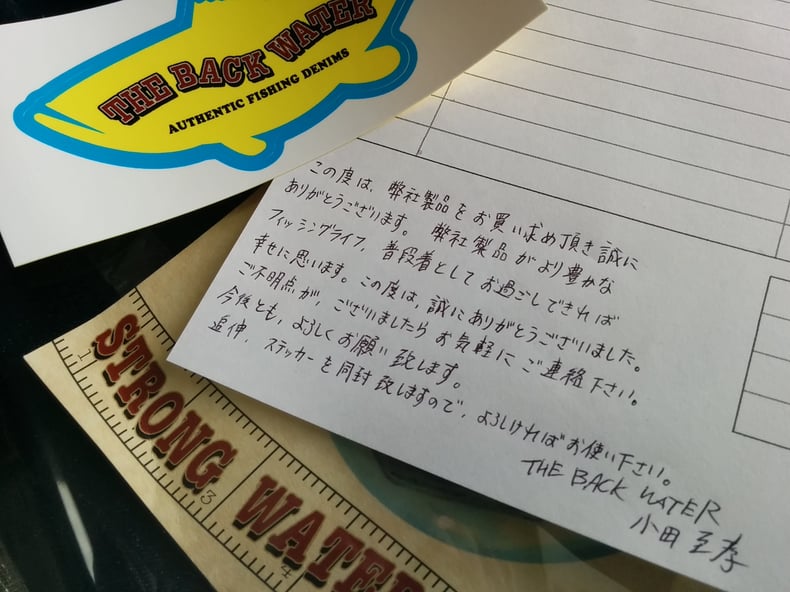 THE BACK WATER
AUTHENTIC FISHING DENIMS
この度は、弊社製品をお買い求め頂き誠に
ありがとうございます。弊社製品がより豊かな
フィッシングライフ、普段着としてお過ごしできれば
幸せに思います。この度は、誠にありがとうございました。
ご不明点が、ございましたらお気軽にご連絡下さい。
今後とも、よろしくお願い致します。
追伸、ステッカーを同封致しますので、よろしければお使い下さい。
THE BACK WATER
小田 至孝
STRONG WATER
1
3
4